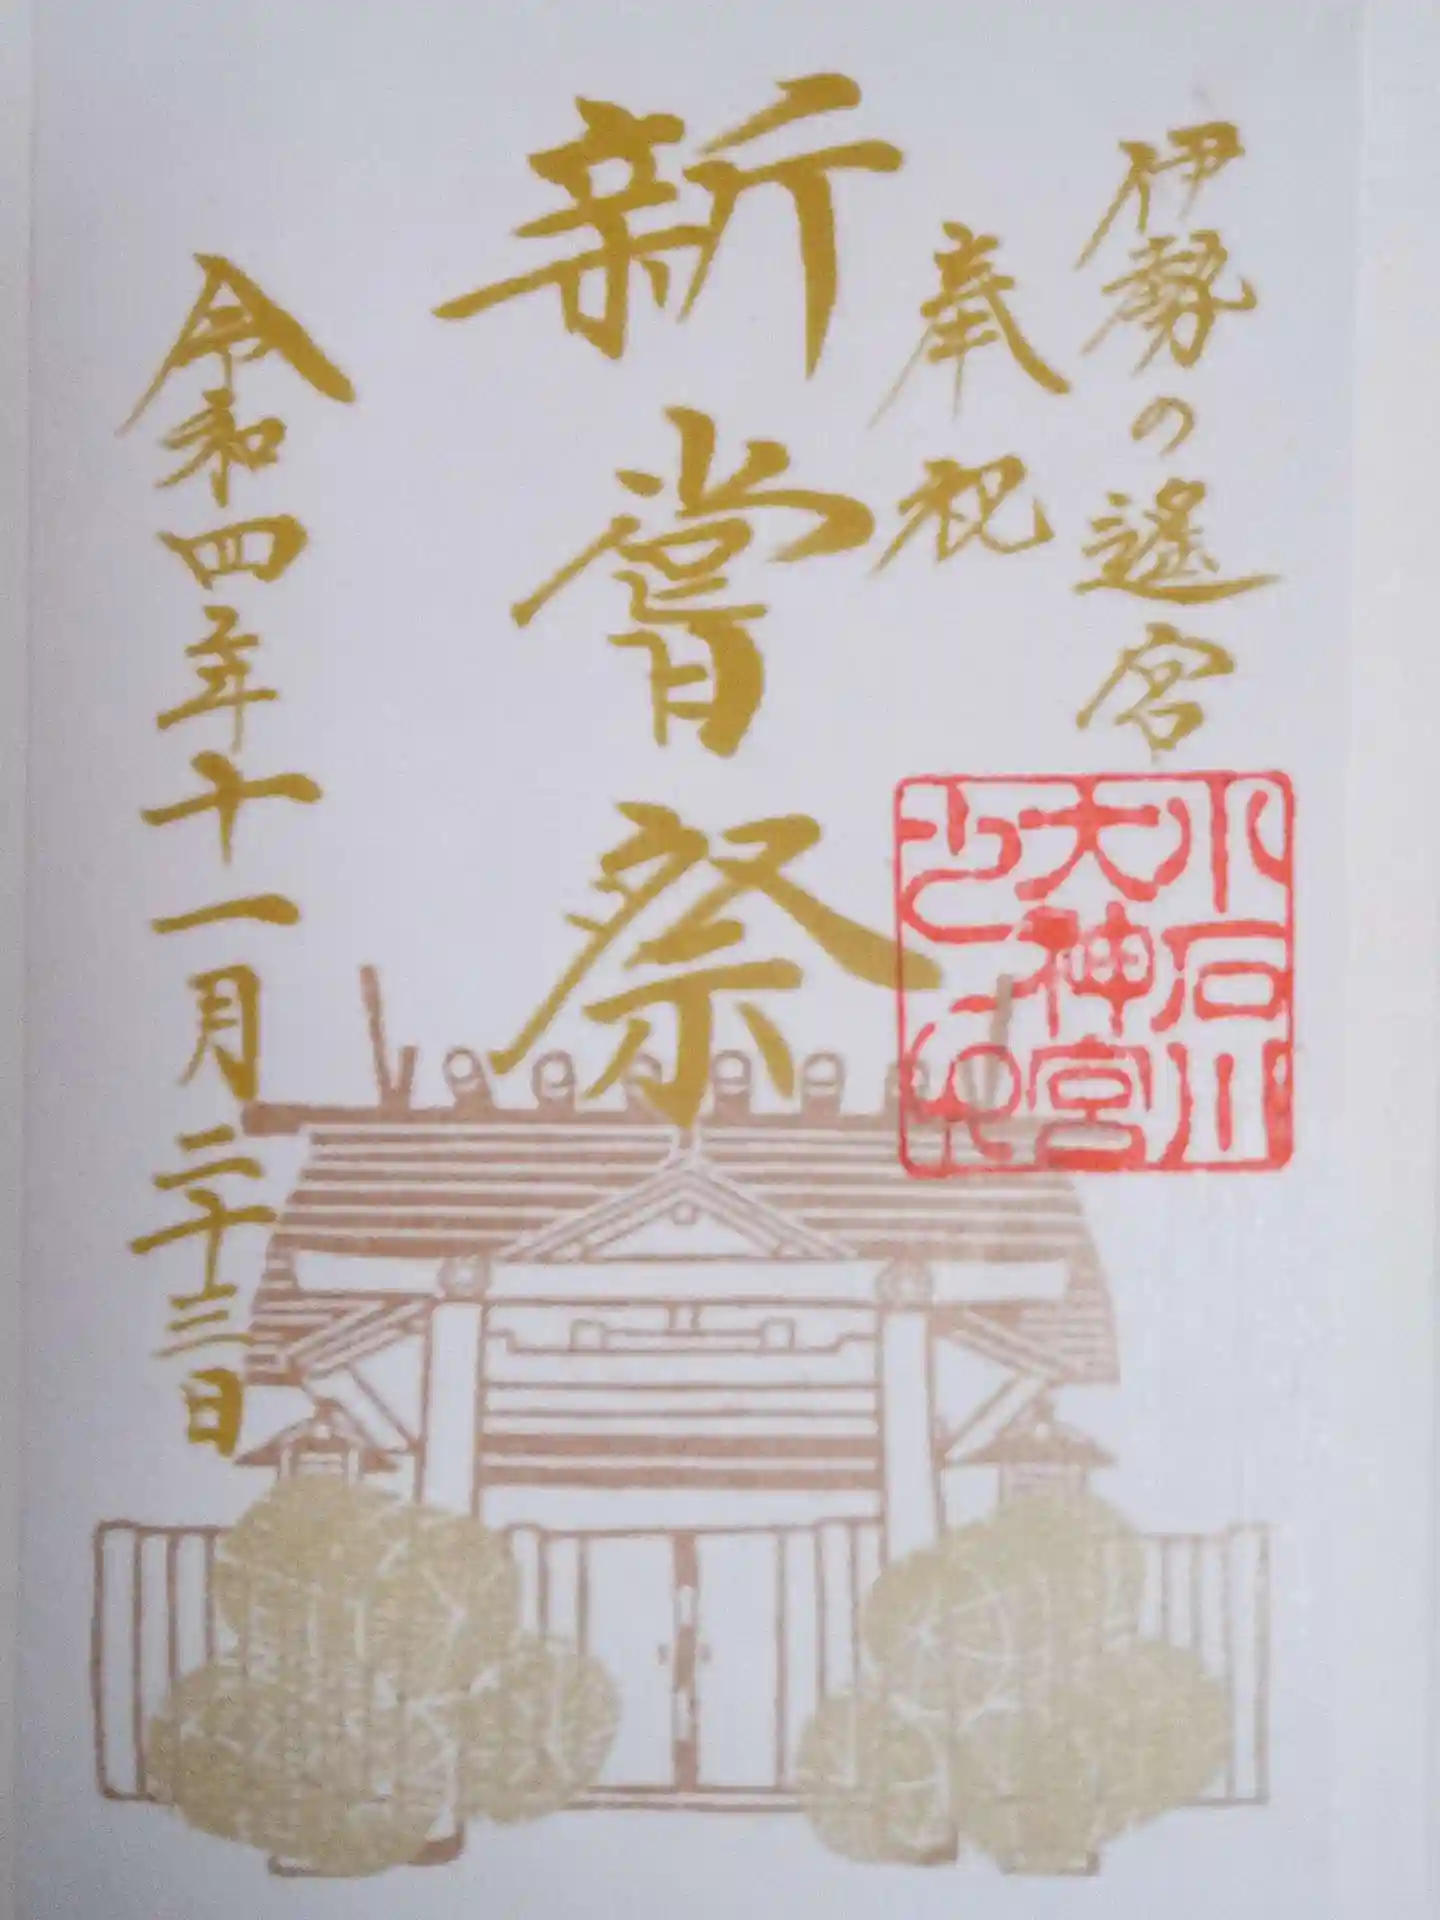 伊勢の遥宮
奉祝
新嘗祭
小石川
大神宮
令和四年十一月二十三日